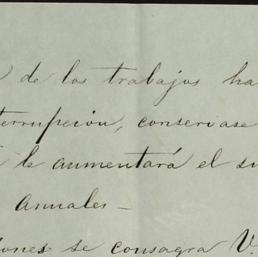 de los trabajos ha
terrupcion, conservase
le aumentará el su
Annales _
ones se consagra V.